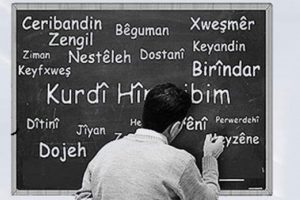 Ceribandin Bêguman Xweşmêr
Zengil Keyandin
Ziman Nestêleh Dostanî
Keyfxweş Birîndar
Kurdî bim
Dîtinî Perwerdehî
Jîyan
Dojeh